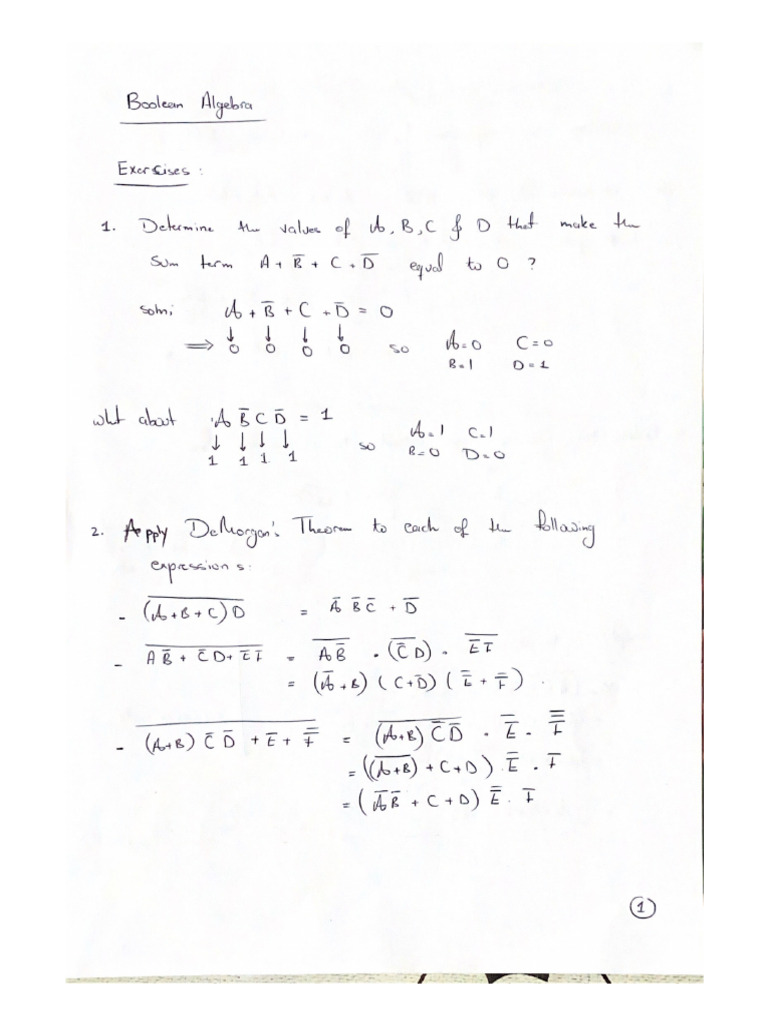 Boolean Algebra
Exercises :
1. Determine the values of A, B, C & D that make the
Sum term A + B̅ + C + D̅ equal to 0 ?
soln: A + B̅ + C + D̅ = 0
⟹ ↓0 ↓0 ↓0 ↓0 so A=0 C=0
B=1 D=1
what about A B̅ C D̅ = 1
↓ ↓ ↓ ↓ so A=1 C=1
1 1 1 1 B=0 D=0
2. Apply DeMorgan's Theorem to each of the following
expressions:
- \overline{(A+B+C)D} = A̅ B̅ C̅ + D̅
- \overline{A B̅ + C̅ D + E̅ F} = \overline{A B̅} . \overline{(C̅ D)} . \overline{E̅ F̅}
= (A̅ + B) (C + D̅) (\overline{E̅} + \overline{F̅}) .
- \overline{(A+B) C̅ D̅ + E̅ + \overline{F̅}} = \overline{(A+B) C̅ D̅} . \overline{E̅} . \overline{\overline{F̅}}
= (\overline{(A+B)} + C + D) . \overline{E̅} . F̅
= (A̅ B̅ + C + D) \overline{E̅} . F̅
1